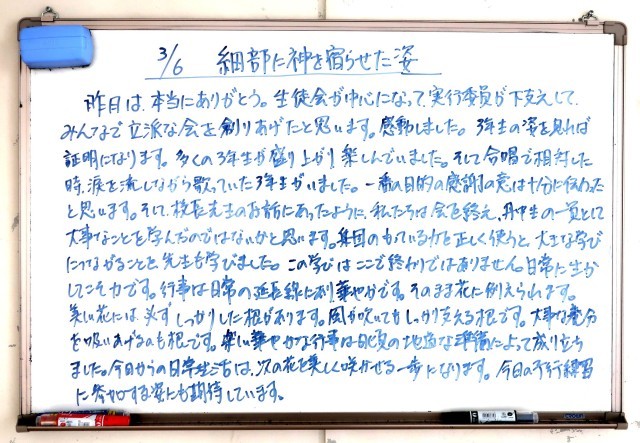 3/6 細部に神を宿らせた姿
昨日は、本当にありがとう。生徒会が中心になって、実行委員が下支えして、
みんなで立派な会を創りあげたと思います。感動しました。3年生の姿を見れば
証明になります。多くの3年生が盛り上がり楽しんでいました。そして合唱で相対した
時、涙を流しながら歌っていた3年生がいました。一番の目的の感謝の意は十分に伝わった
と思います。そして、校長先生のお話にあったように、私たちは会を終え、中生の一員として
大事なことを学んだのではないかと思います。集団のもっている力を正しく使うと、大きな学び
につながることを先生も学びました。この学びはここで終わりではありません。日常に生か
してこそ力です。行事は日常の延長線にあり華やかです。そのまま花に例えられます。
美しい花には、必ずしっかりした根があります。風が吹いてもしっかり支える根です。大事な養分
を吸いあげるのも根です。楽しい華やかな行事は日頃の地道な準備によって成り立ち
ました。今日からの日常生活は、次の花を美しく咲かせる一歩になります。今日の予行練習
に参加する姿にも期待しています。